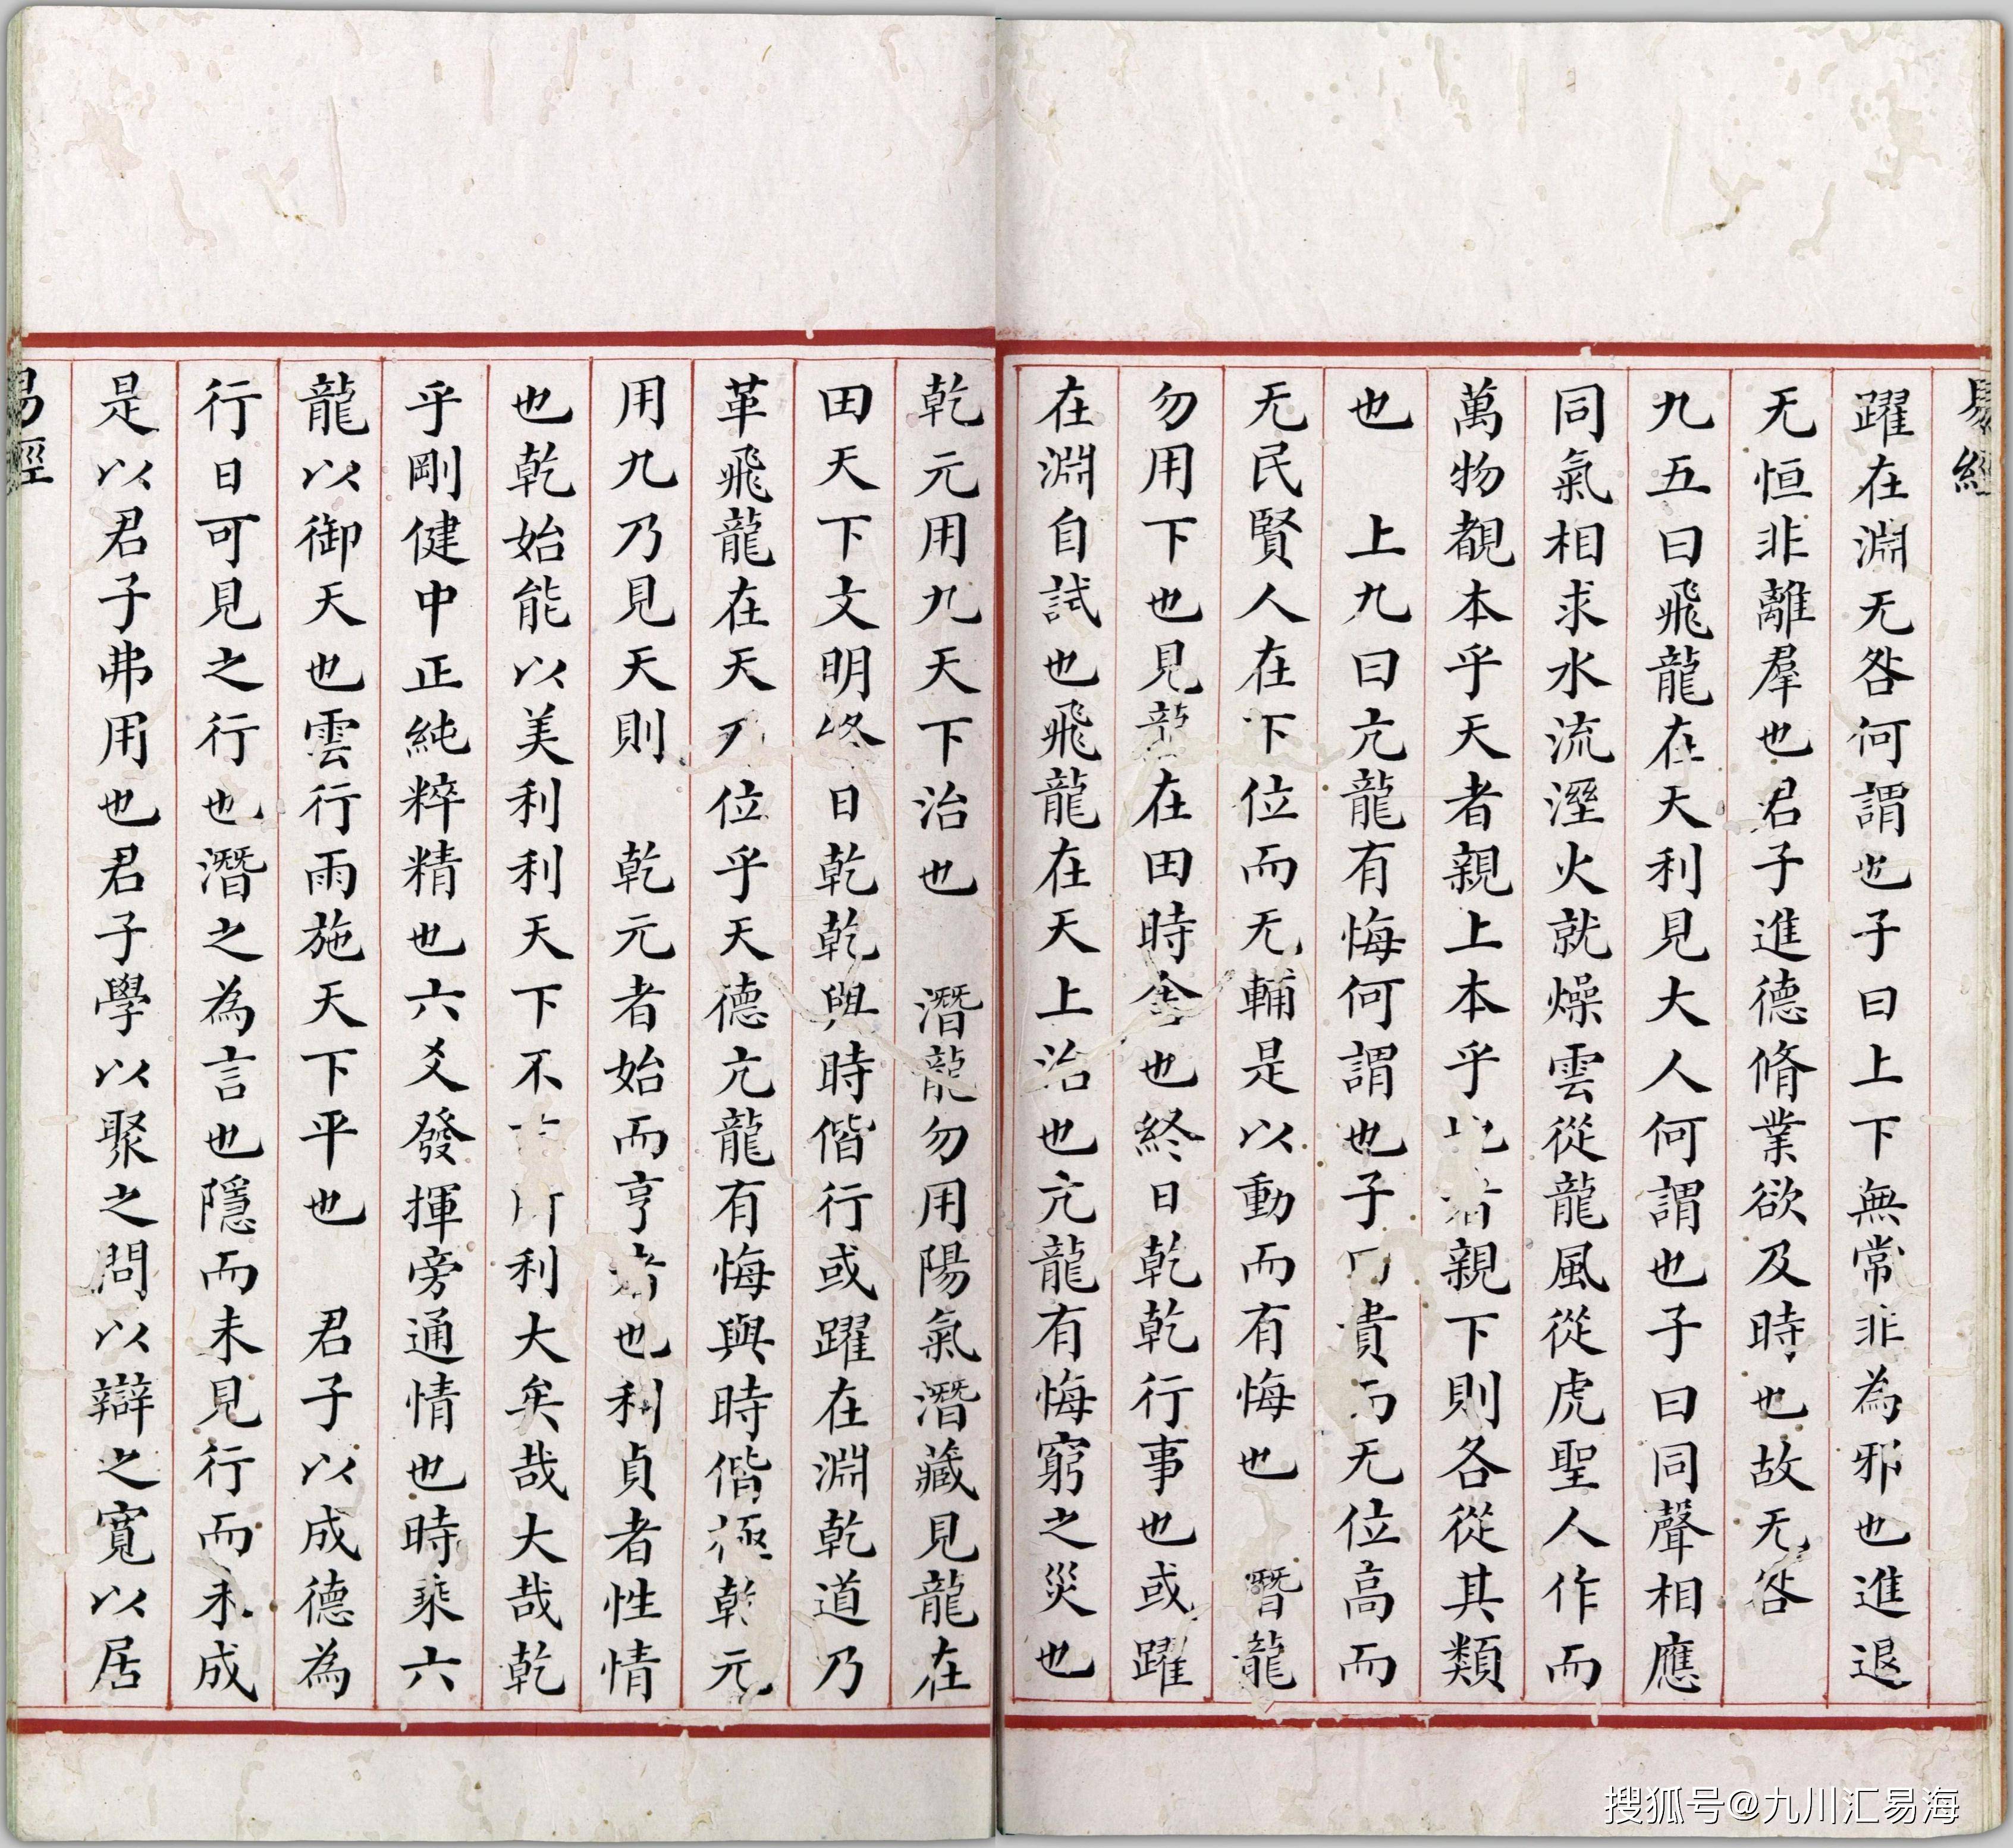 易經
躍在淵无咎何謂也子曰上下無常非為邪也進退
无恒非離羣也君子進德脩業欲及時也故无咎
九五曰飛龍在天利見大人何謂也子曰同聲相應
同氣相求水流溼火就燥雲從龍風從虎聖人作而
萬物覩本乎天者親上本乎地者親下則各從其類
也 上九曰亢龍有悔何謂也子曰貴而无位高而
无民賢人在下位而无輔是以動而有悔也 潛龍
勿用下也見龍在田時舍也終日乾乾行事也或躍
在淵自試也飛龍在天上治也亢龍有悔窮之災也
乾元用九天下治也 潛龍勿用陽氣潛藏見龍在
田天下文明終日乾乾與時偕行或躍在淵乾道乃
革飛龍在天乃位乎天德亢龍有悔與時偕極乾元
用九乃見天則 乾元者始而亨者也利貞者性情
也乾始能以美利利天下不所利大矣哉大哉乾
乎剛健中正純粹精也六爻發揮旁通情也時乘六
龍以御天也雲行雨施天下平也 君子以成德為
行日可見之行也潛之為言也隱而未見行而未成
是以君子弗用也君子學以聚之問以辯之寬以居
易經
搜狐号@九川汇易海